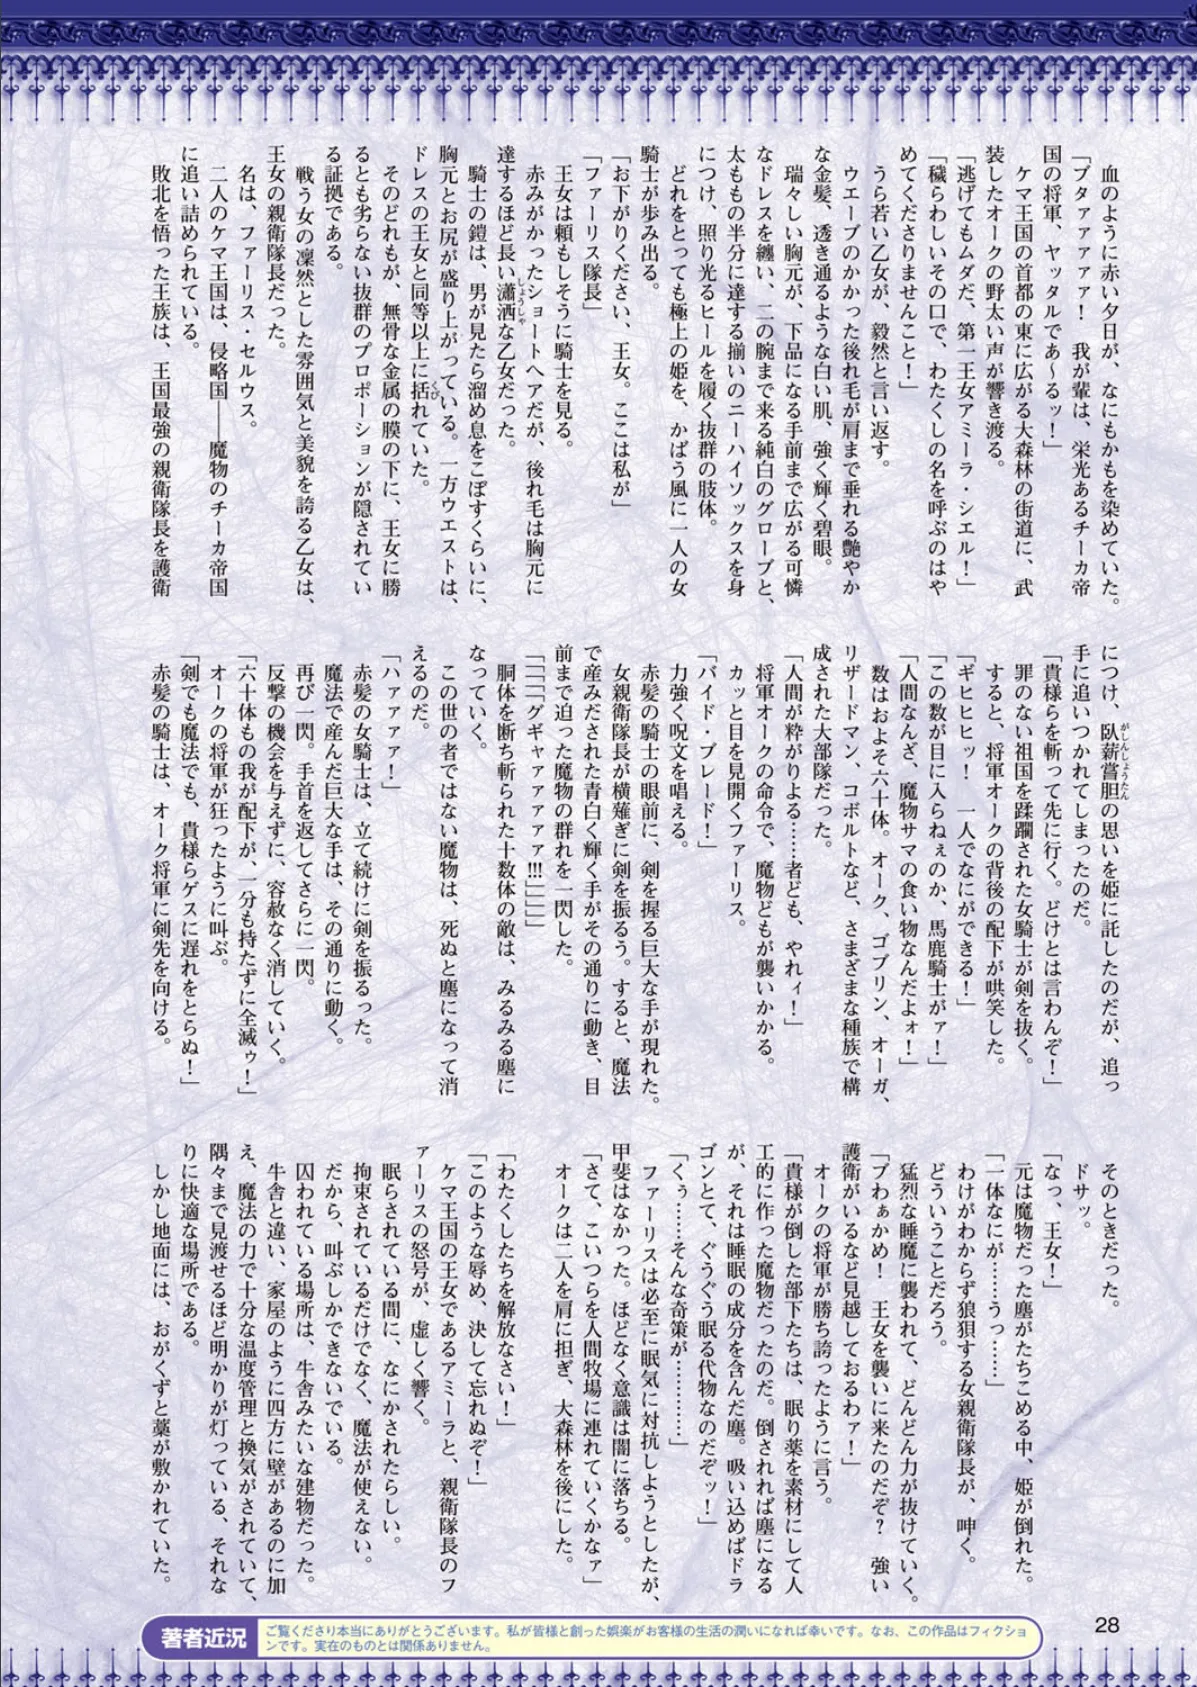 血のように赤い夕日が、なにもかもを染めていた。
「ブタァァァァァ！　我が輩は、栄光あるチーカ帝
国の将軍、ヤッタルであ～るッ！」
ケマ王国の首都の東に広がる大森林の街道に、武
装したオークの野太い声が響き渡る。
「逃げてもムダだ、第一王女アミーラ・シエル！」
「穢らわしいその口で、わたくしの名を呼ぶのはや
めてくださりませんこと！」
うら若い乙女が、毅然と言い返す。
ウエーブのかかった後れ毛が肩まで垂れる艶やか
な金髪、透き通るような白い肌、強く輝く碧眼。
瑞々しい胸元が、下品になる手前まで広がる可憐
なドレスを纏い、二の腕まで来る純白のグローブと、
太ももの半分に達する揃いのニーハイソックスを身
につけ、照り光るヒールを履く抜群の肢体。
どれをとっても極上の姫を、かばう風に一人の女
騎士が歩み出る。
「お下がりください、王女。ここは私が」
「ファーリス隊長」
王女は頼もしそうに騎士を見る。
赤みがかったショートヘアだが、後れ毛は胸元に
達するほど長い瀟洒な乙女だった。
しょうしゃ
騎士の鎧は、男が見たら溜め息をこぼすくらいに、
胸元とお尻が盛り上がっている。一方ウエストは、
ドレスの王女と同等以上に括れていた。
くび
そのどれもが、無骨な金属の膜の下に、王女に勝
るとも劣らない抜群のプロポーションが隠されてい
る証拠である。
戦う女の凜然とした雰囲気と美貌を誇る乙女は、
王女の親衛隊長だった。
名は、ファーリス・セルウス。
二人のケマ王国は、侵略国――魔物のチーカ帝国
に追い詰められている。
敗北を悟った王族は、王国最強の親衛隊長を護衛
につけ、臥薪嘗胆の思いを姫に託したのだが、追っ
がしんしょうたん
手に追いつかれてしまったのだ。
「貴様らを斬って先に行く。どけとは言わんぞ！」
罪のない祖国を蹂躙された女騎士が剣を抜く。
すると、将軍オークの背後の配下が哄笑した。
「ギヒヒヒッ！　一人でなにができる！」
「この数が目に入らねぇのか、馬鹿騎士がァ！」
「人間なんざ、魔物サマの食い物なんだよォ！」
数はおよそ六十体。オーク、ゴブリン、オーガ、
リザードマン、コボルトなど、さまざまな種族で構
成された大部隊だった。
「人間が粋がりよる……者ども、やれィ！」
将軍オークの命令で、魔物どもが襲いかかる。
カッと目を見開くファーリス。
「バイド・ブレード！」
力強く呪文を唱える。
赤髪の騎士の眼前に、剣を握る巨大な手が現れた。
女親衛隊長が横薙ぎに剣を振るう。すると、魔法
で産みだされた青白く輝く手がその通りに動き、目
前まで迫った魔物の群れを一閃した。
「「「「グギャァァァァァ!!!」」」」
胴体を断ち斬られた十数体の敵は、みるみる塵に
なっていく。
この世の者ではない魔物は、死ぬと塵になって消
えるのだ。
「ハァァァァ！」
赤髪の女騎士は、立て続けに剣を振るった。
魔法で産んだ巨大な手は、その通りに動く。
再び一閃。手首を返してさらに一閃。
反撃の機会を与えずに、容赦なく消していく。
「六十体もの我が配下が、一分も持たずに全滅ゥ！」
オークの将軍が狂ったように叫ぶ。
「剣でも魔法でも、貴様らゲスに遅れをとらぬ！」
赤髪の騎士は、オーク将軍に剣先を向ける。
そのときだった。
ドサッ。
「なっ、王女！」
元は魔物だった塵がたちこめる中、姫が倒れた。
「一体なにが……うっ……」
わけがわからず狼狽する女親衛隊長が、呻く。
どういうことだろう。
猛烈な睡魔に襲われて、どんどん力が抜けていく。
「ブわぁかめ！　王女を襲いに来たのだぞ？　強い
護衛がいるなど見越しておるわァ！」
オークの将軍が勝ち誇ったように言う。
「貴様が倒した部下たちは、眠り薬を素材にして人
工的に作った魔物だったのだ。倒されれば塵になる
が、それは睡眠の成分を含んだ塵。吸い込めばドラ
ゴンとて、ぐうぐう眠る代物なのだぞッ！」
「くぅ……そんな奇策が…………」
ファーリスは必至に眠気に対抗しようとしたが、
甲斐はなかった。ほどなく意識は闇に落ちる。
「さて、こいつらを人間牧場に連れていくかなァ」
オークは二人を肩に担ぎ、大森林を後にした。
「わたくしたちを解放なさい！」
「このような辱め、決して忘れぬぞ！」
ケマ王国の王女であるアミーラと、親衛隊長のフ
ァーリスの怒号が、虚しく響く。
眠らされている間に、なにかされたらしい。
拘束されているだけでなく、魔法が使えない。
だから、叫ぶしかできないでいる。
囚われている場所は、牛舎みたいな建物だった。
牛舎と違い、家屋のように四方に壁があるのに加
え、魔法の力で十分な温度管理と換気がされていて、
隅々まで見渡せるほど明かりが灯っている、それな
りに快適な場所である。
しかし地面には、おがくずと藁が敷かれていた。
28
著者近況
ご覧くださり本当にありがとうございます。私が皆様と創った娯楽がお客様の生活の潤いになれば幸いです。なお、この作品はフィクショ
ンです。実在のものとは関係ありません。